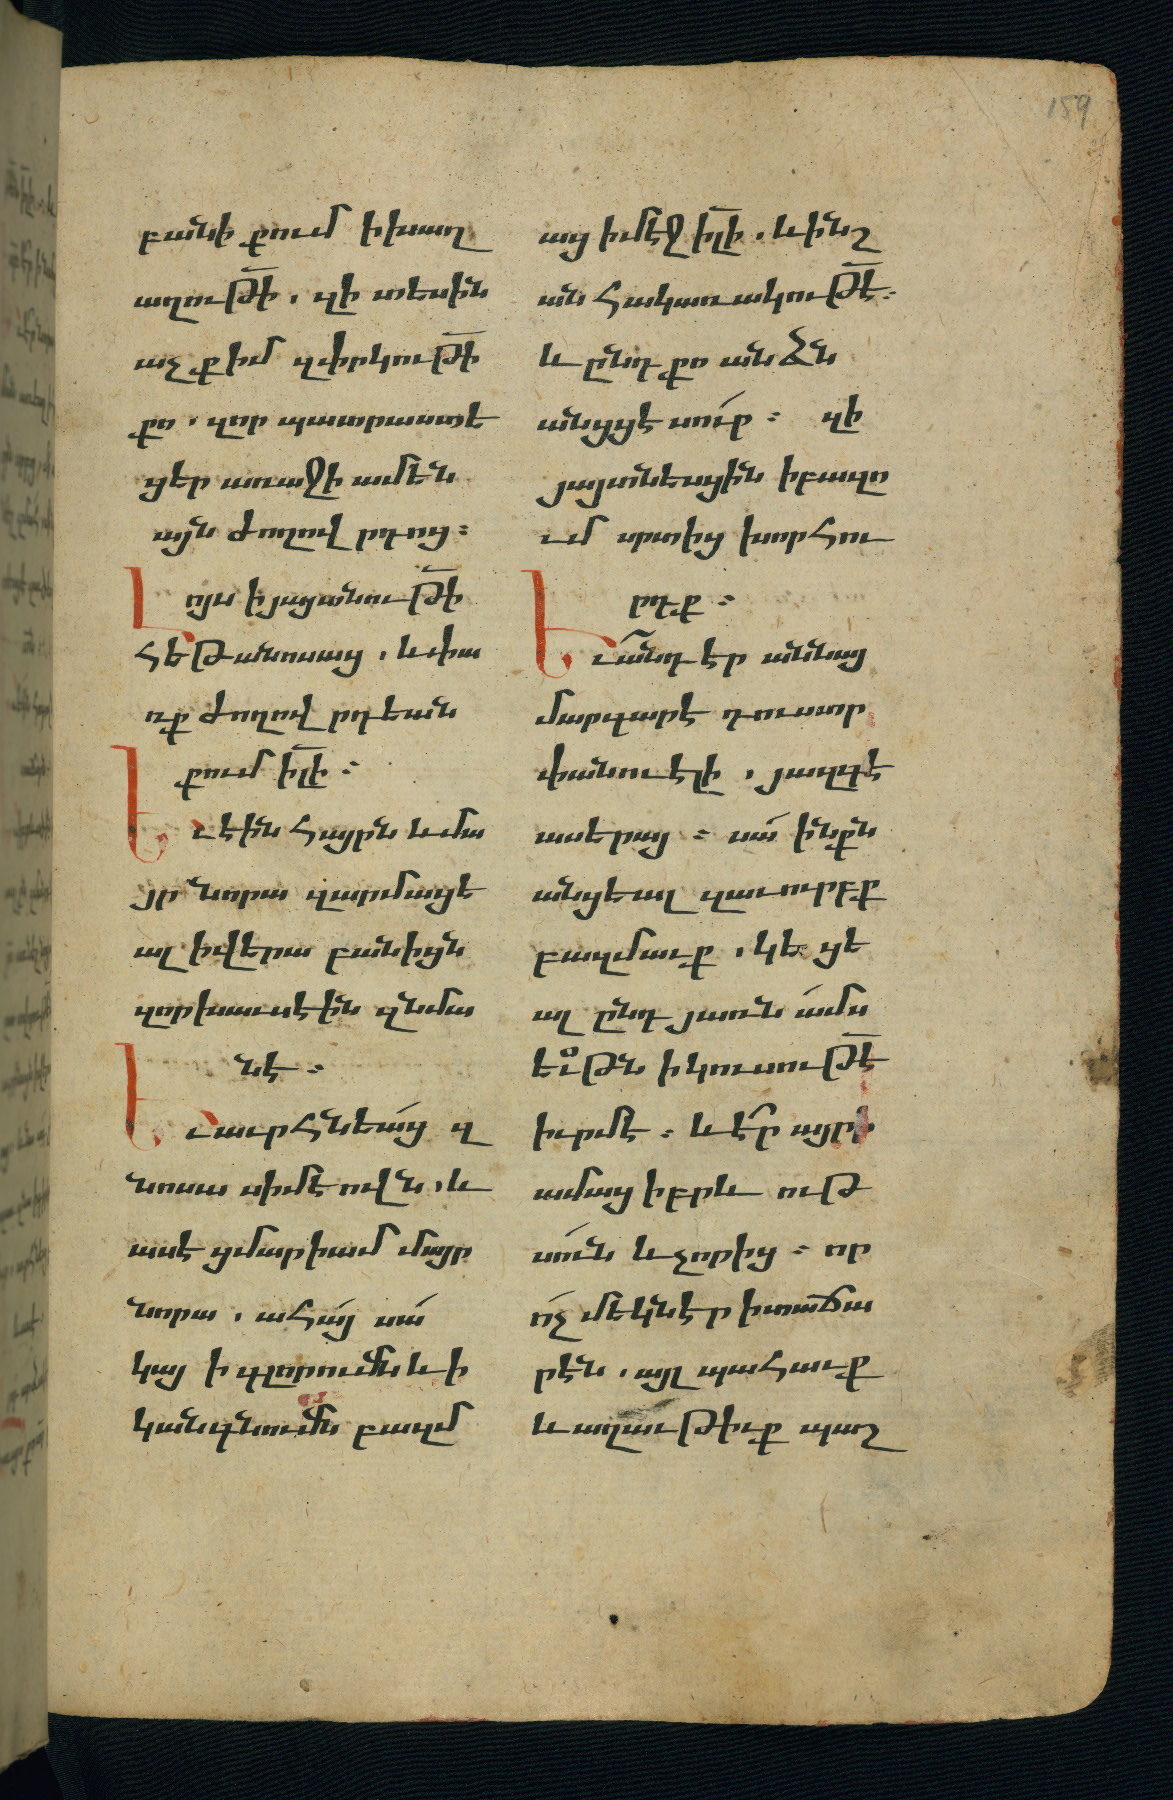 159
բանի քում ի խաղ
աղութի̄. զի տեսին
աչք իմ զփրկութի̄
քո. զոր պատրաստե
ցեր առաջի ամեն
այն ժողովրդոց։
Լոյս ի յայտնութի̄
հեթանոսաց. և փա
ռք ժողովրդեան
քում ի̄լի։
Եւ էին հայրն և մա
յր նորա զարմացե
ալ ի վերա բանիցն
զոր խաւսէին զնմա
նէ։
Եւ աւրհնեա՛ց զ
նոսա սիմէովն. և
ասէ ցմարիամ մայր
նորա. ահա՛յ սա՛
կայ ի գլորումն և ի
կանգնումն բազմ
աց ի մէջ ի̄լի. և ի նշ
ան հակառակութէ̄։
և ընդ քո անձն
անցցէ սո՛ւր։ զի
յայտնեսցին ի բազո
ւմ սրտից խորհու
րդք։
Եւ ա՛նդ էր աննայ
մարգարէ դուստր
փանուէլի. յազգէ
ասերայ։ սա՛ ինքն
անցեալ զաւուրբք
բազմաւք. կեցե
ալ ընդ առն ա՛մս
եւթն ի կուսութէ̄
իւրմէ։ և է՛ր այրի
ամաց իբրև ութ
սո՛ւն և չորից։ որ
ո՛չ մեկնէր ի տաճա
րէն. այլ պահաւք
և աղաւթիւք պաշ